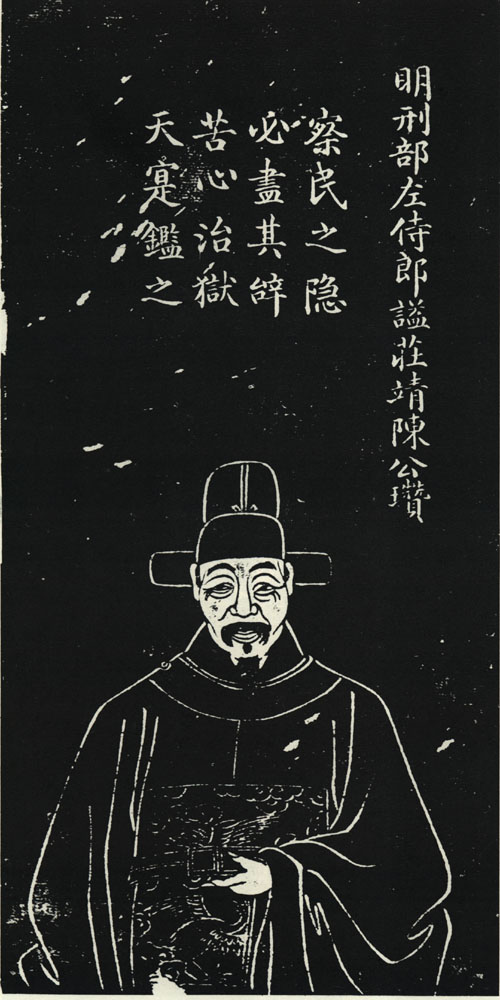 明刑部左侍郎諡莊靖陳公瓚
察民之隐
必盡其辤
苦心治獄
天寔鑑之